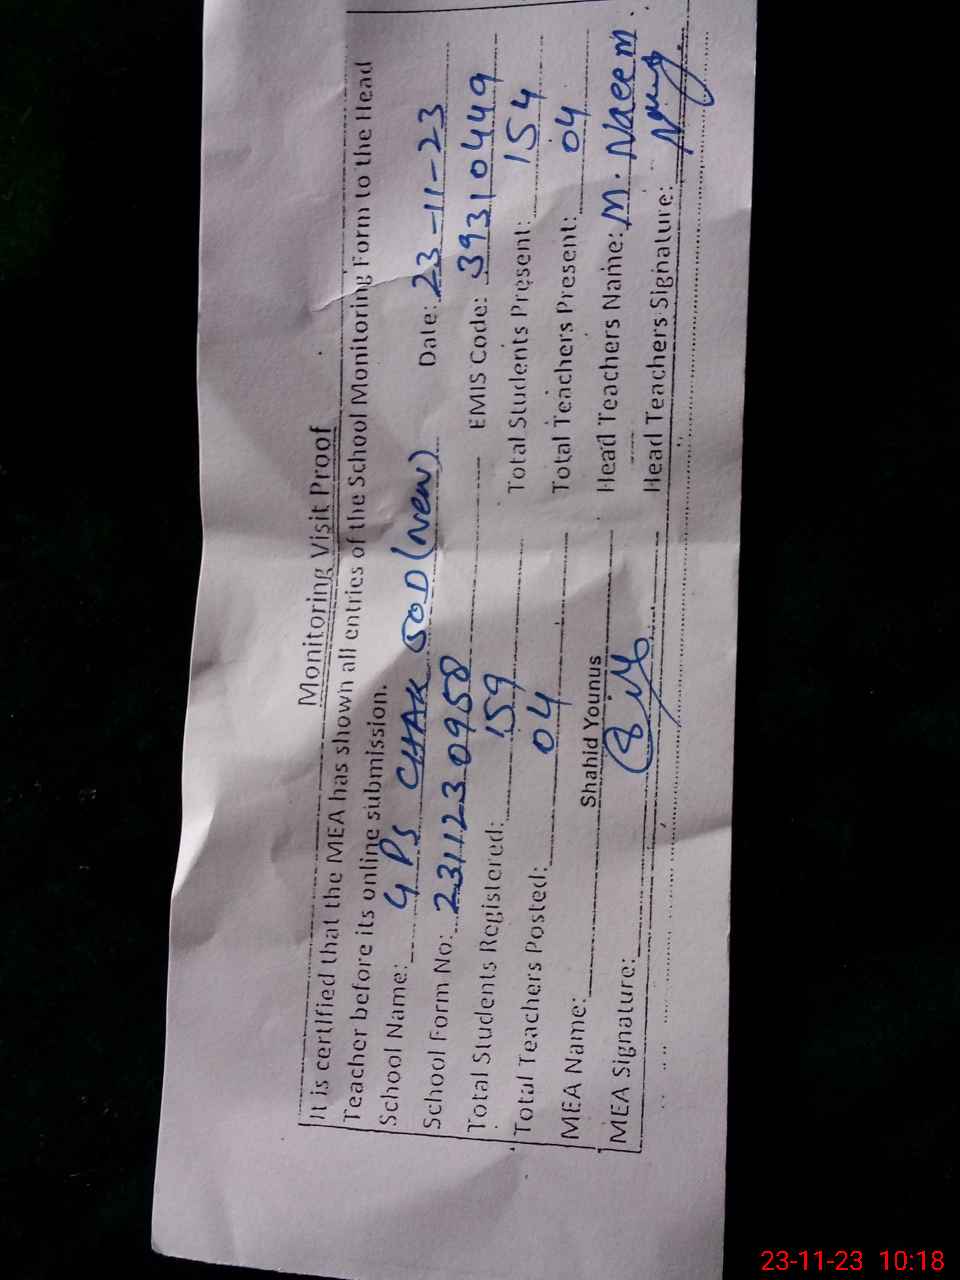 Monitoring Visit Proof
It is certified that the MEA has shown all entries of the School Monitoring Form to the Head
Teacher before its online submission.
School Name: GPS CHAK 50D (New) Date: 23-11-23
School Form No: 231123 0958 EMIS Code: 39310449
Total Students Registered: 159 Total Students Present: 154
Total Teachers Posted: 04 Total Teachers Present: 04
MEA Name: Shahid Younus Head Teachers Name: M. Naeem
MEA Signature: Head Teachers Signature:
23-11-23 10:18